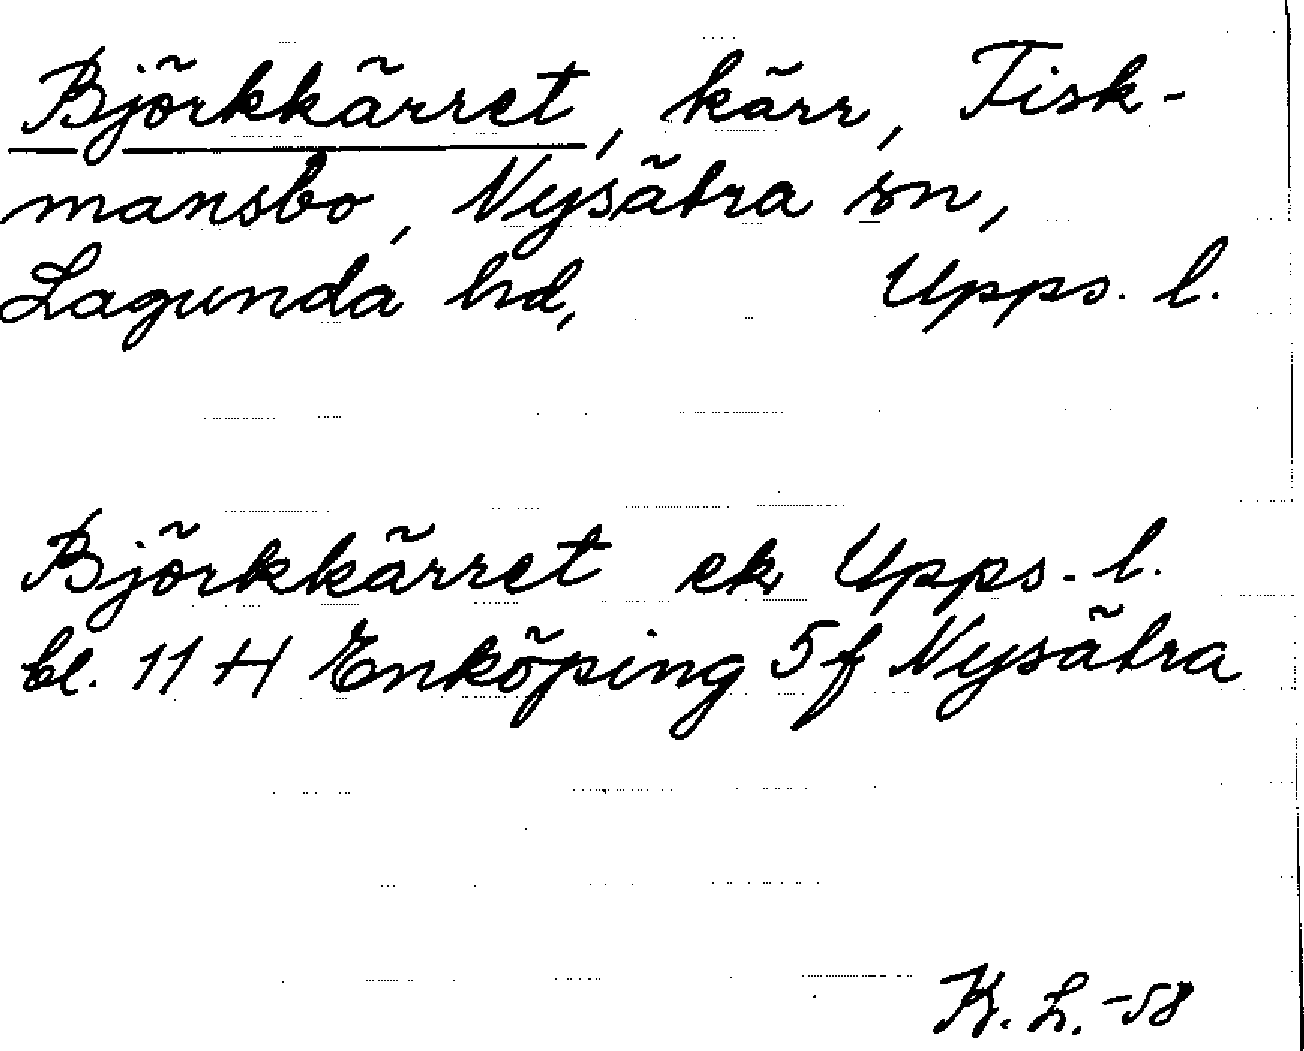 Björkkärret, kärr, Fisk-
mansbo, Nysätra sn,
Lagunda hd, Upps. l.
Björkkärret ek Upps. l.
bl. 11 H Enköping 5f Nysätra
K. L. -58